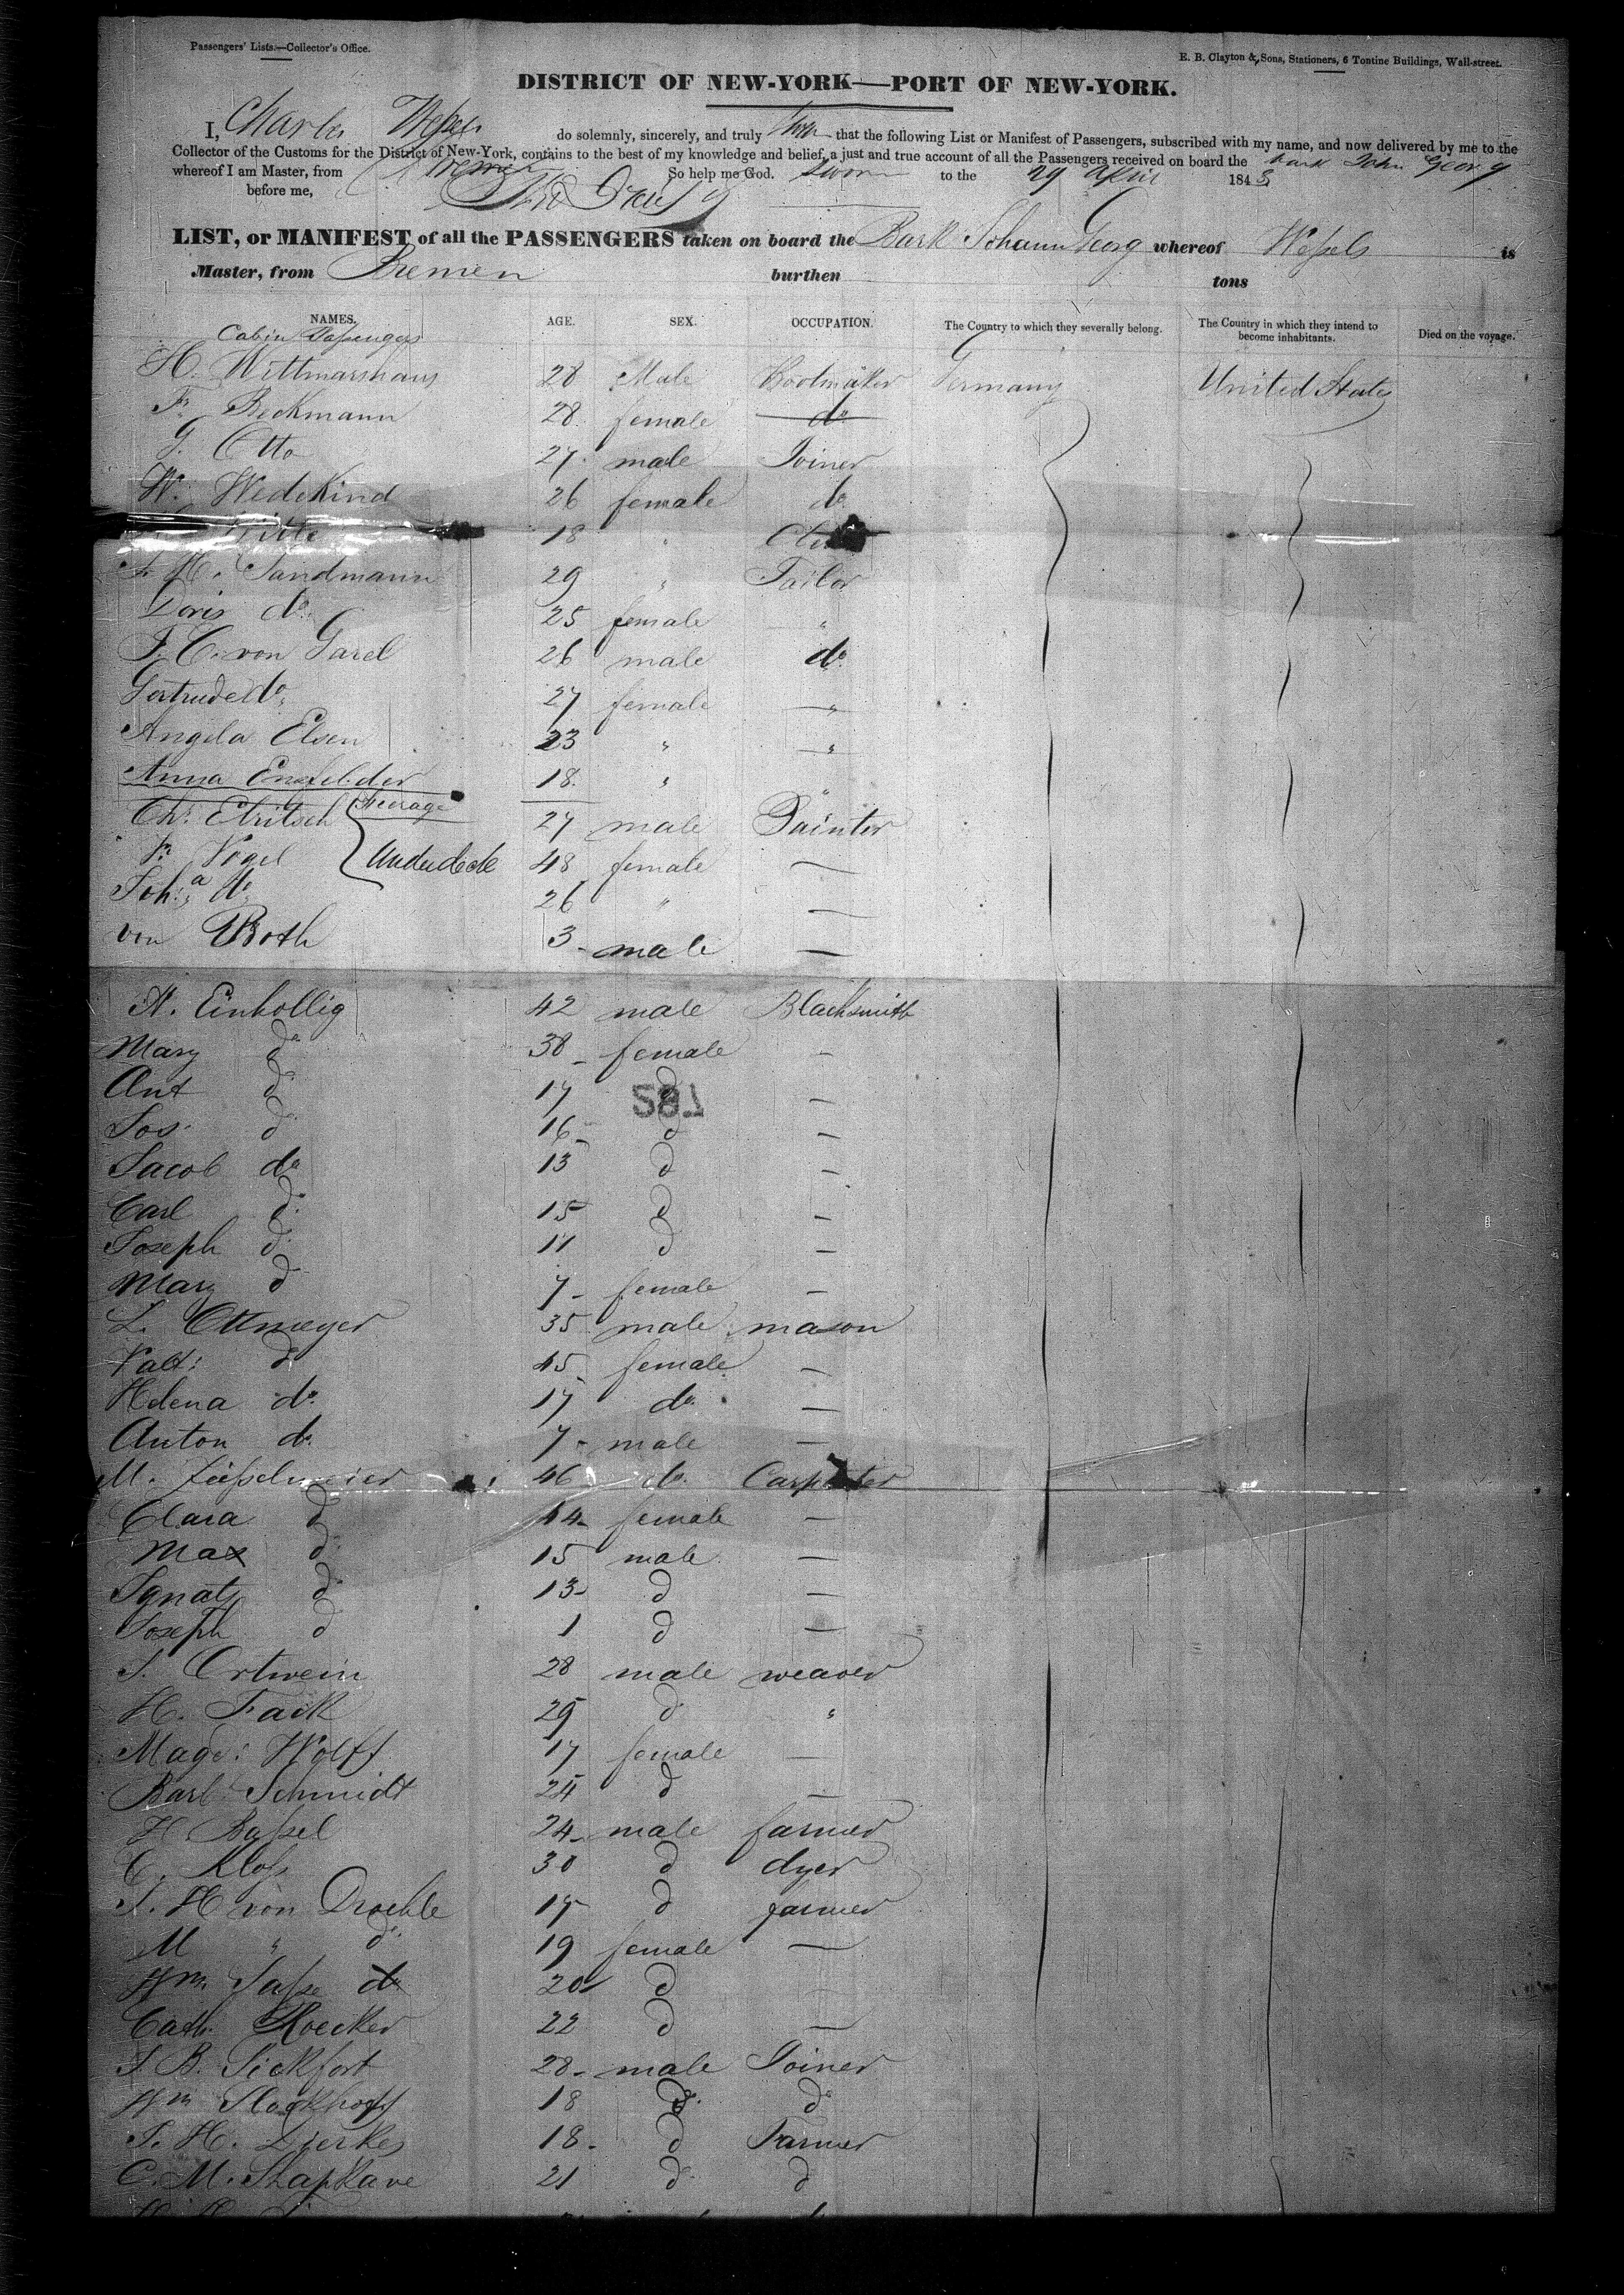 Passengers' Lists.—Collector's Office.
E. B. Clayton & Sons, Stationers, 6 Tontine Buildings, Wall-street.
DISTRICT OF NEW-YORK—PORT OF NEW-YORK.
I, Charles Weſsels do solemnly, sincerely, and truly that the following List or Manifest of Passengers, subscribed with my name, and now delivered by me to the
Collector of the Customs for the District of New-York, contains to the best of my knowledge and belief, a just and true account of all the Passengers received on board the bark John Georg
whereof I am Master, from Bremen So help me God. Sworn to the 29 April 1843
before me,
LIST, or MANIFEST of all the PASSENGERS taken on board the Bark Johann Georg whereof Weſsels is
Master, from Bremen burthen tons
NAMES. AGE. SEX. OCCUPATION. The Country to which they severally belong. The Country in which they intend to become inhabitants. Died on the voyage.
Cabin Paſsengers
H. Wittmarshaus 28 Male Bootmaker Germany United States
F. Beckmann 28 female do
G. Otto 27 male Joiner
W. Wedekind 26 female do
18 "
J. H. Sandmann 29 " Tailor
Doris do 25 female "
J. C. von Garel 26 male do
Gertrude do 27 female "
Angela Elsen 23 " "
Anna 18 " "
Steerage
Chr. Etritsch 27 male Painter
Fr. Vogel Underdeck 48 female —
Joha do 26 " —
von Both 3 - male —
A. Einhollig 42 male Blacksmith
Mary do 38 - female -
Ant do 17 d -
782
Jos. d 16 - d -
Jacob do 13 d -
Carl do 15 d -
Joseph d 11 d -
Mary d 7 - female -
L. Ottmeyer 35 male mason
Valt: do 45 female —
Helena do 17 do —
Anton do 7 - male —
M. 46 do Carpenter
Clara do 44 - female —
Max do 15 male —
Ignatz do 13 - d —
Joseph d 1 d —
J. Ortwein 28 male weaver
H. Fack 29 d "
Magd: Wolff 17 female —
Barb Schmidt 24 d —
H Baſsel 24 - male farmer
C. Kloſs 30 d dyer
J. H von Droehle 17 d farmer
M " do 19 female —
Wm Saſse do 20 d —
Cath. Roecker 22 d —
J. B. Sickfort 28 - male Joiner
Wm Stockhoff 18 d d
J. H. Dierkes 18 - d Farmer
C. M. 21 d d